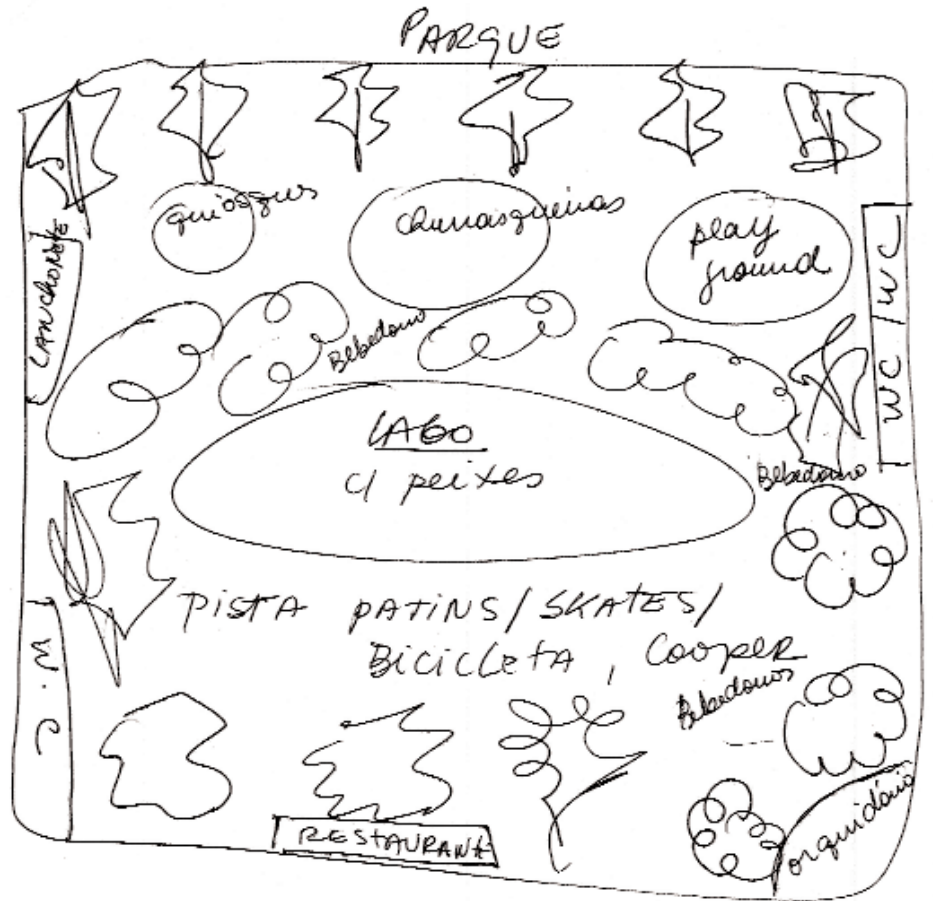 PARQUE
quiosques
churrasqueiras
play
ground
LANCHONETE
WC / WC
Bebedouro
LAGO
c/ peixes
Bebedouro
PISTA PATINS / SKATES /
BICICLETA , COOPER
W. C
Bebedouros
RESTAURANTE
orquidário